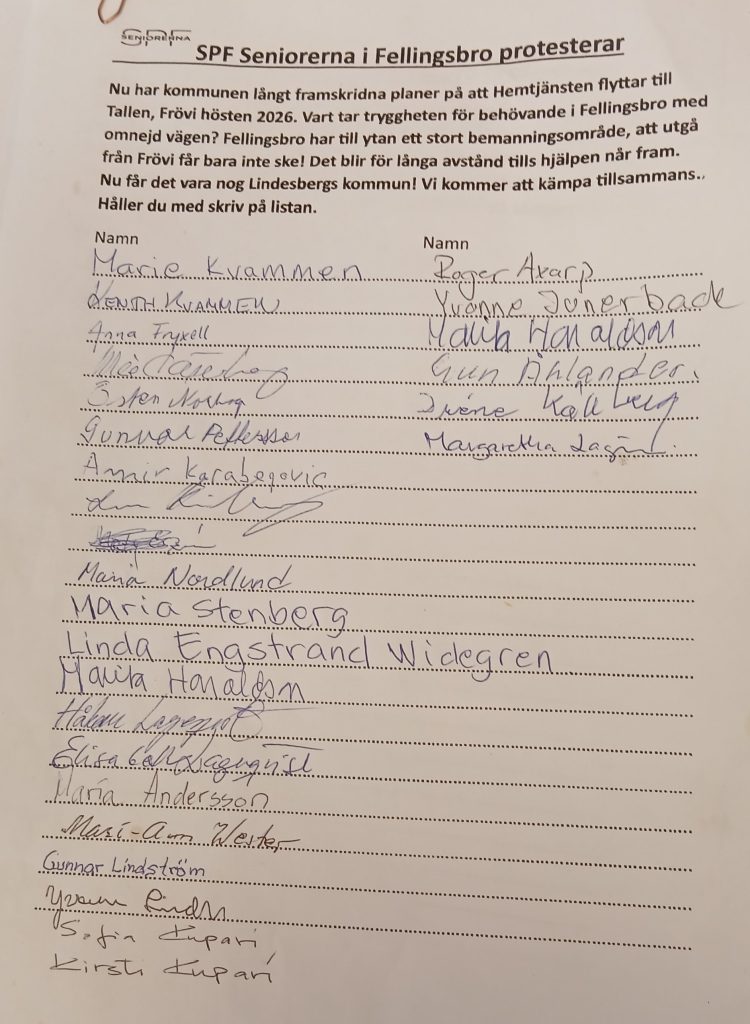 SPF
SENIORERNA
SPF Seniorerna i Fellingsbro protesterar
Nu har kommunen långt framskridna planer på att Hemtjänsten flyttar till
Tallen, Frövi hösten 2026. Vart tar tryggheten för behövande i Fellingsbro med
omnejd vägen? Fellingsbro har till ytan ett stort bemanningsområde, att utgå
från Frövi får bara inte ske! Det blir för långa avstånd tills hjälpen når fram.
Nu får det vara nog Lindesbergs kommun! Vi kommer att kämpa tillsammans..
Håller du med skriv på listan.
Namn
Marie Kvammen
KENTH KVAMMEN
Anna Fryxell
Gunvor Pettersson
Amir Karabegovic
Maria Nordlund
Maria Stenberg
Linda Engstrand Widegren
Malita Haraldson
Håkan
Elisa
Maria Andersson
Mari-Ann Wester
Gunnar Lindström
Sofia Kupari
Kirsti Kupari
Namn
Roger Axarp
Yvonne Junerback
Malita Haraldson
Gun Åhlander.
Iréne Källberg
Margaretha